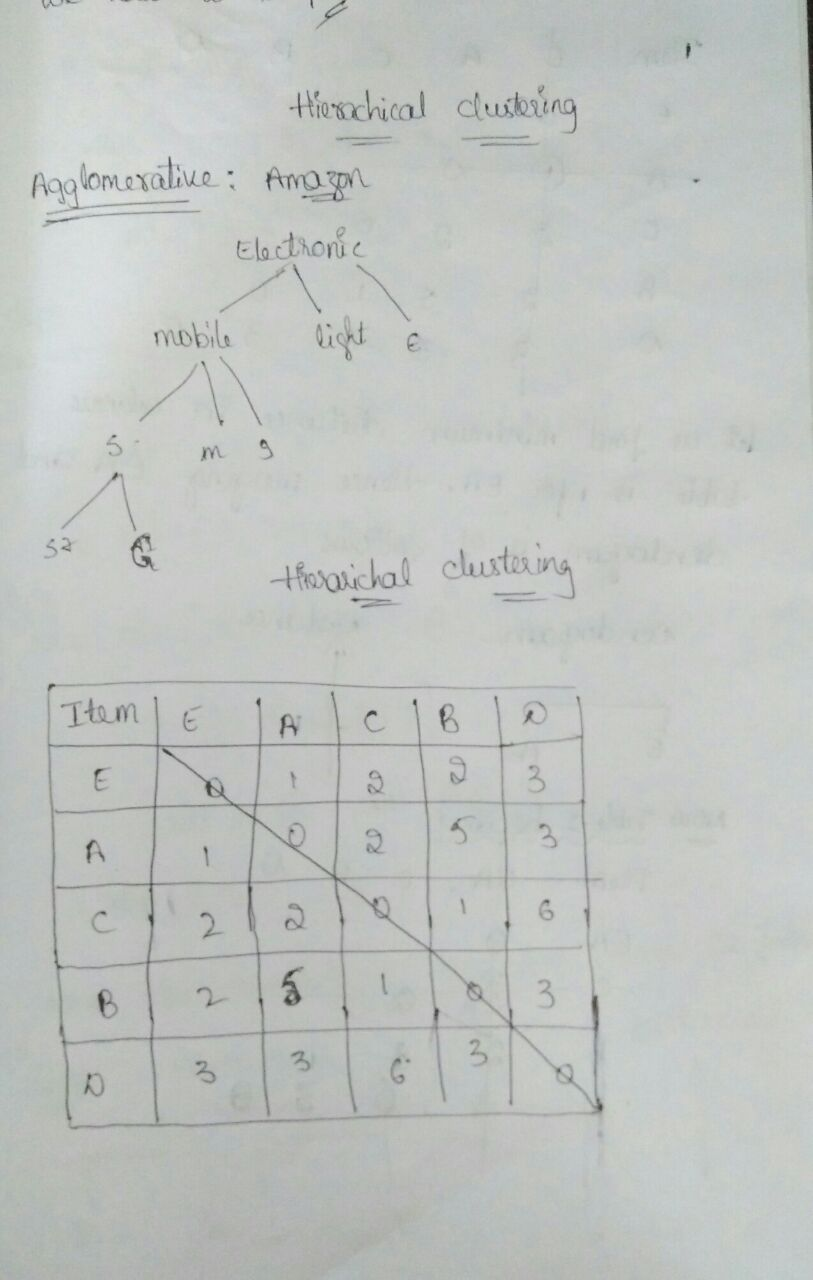 Hierachical clustering
Agglomerative: Amazon
Electronic
mobile light E
S m g
S2 G
Hierarichal clustering
Item E A C B D
E 0 1 2 2 3
A 1 0 2 5 3
C 2 2 0 1 6
B 2 5 1 0 3
D 3 3 6 3 0